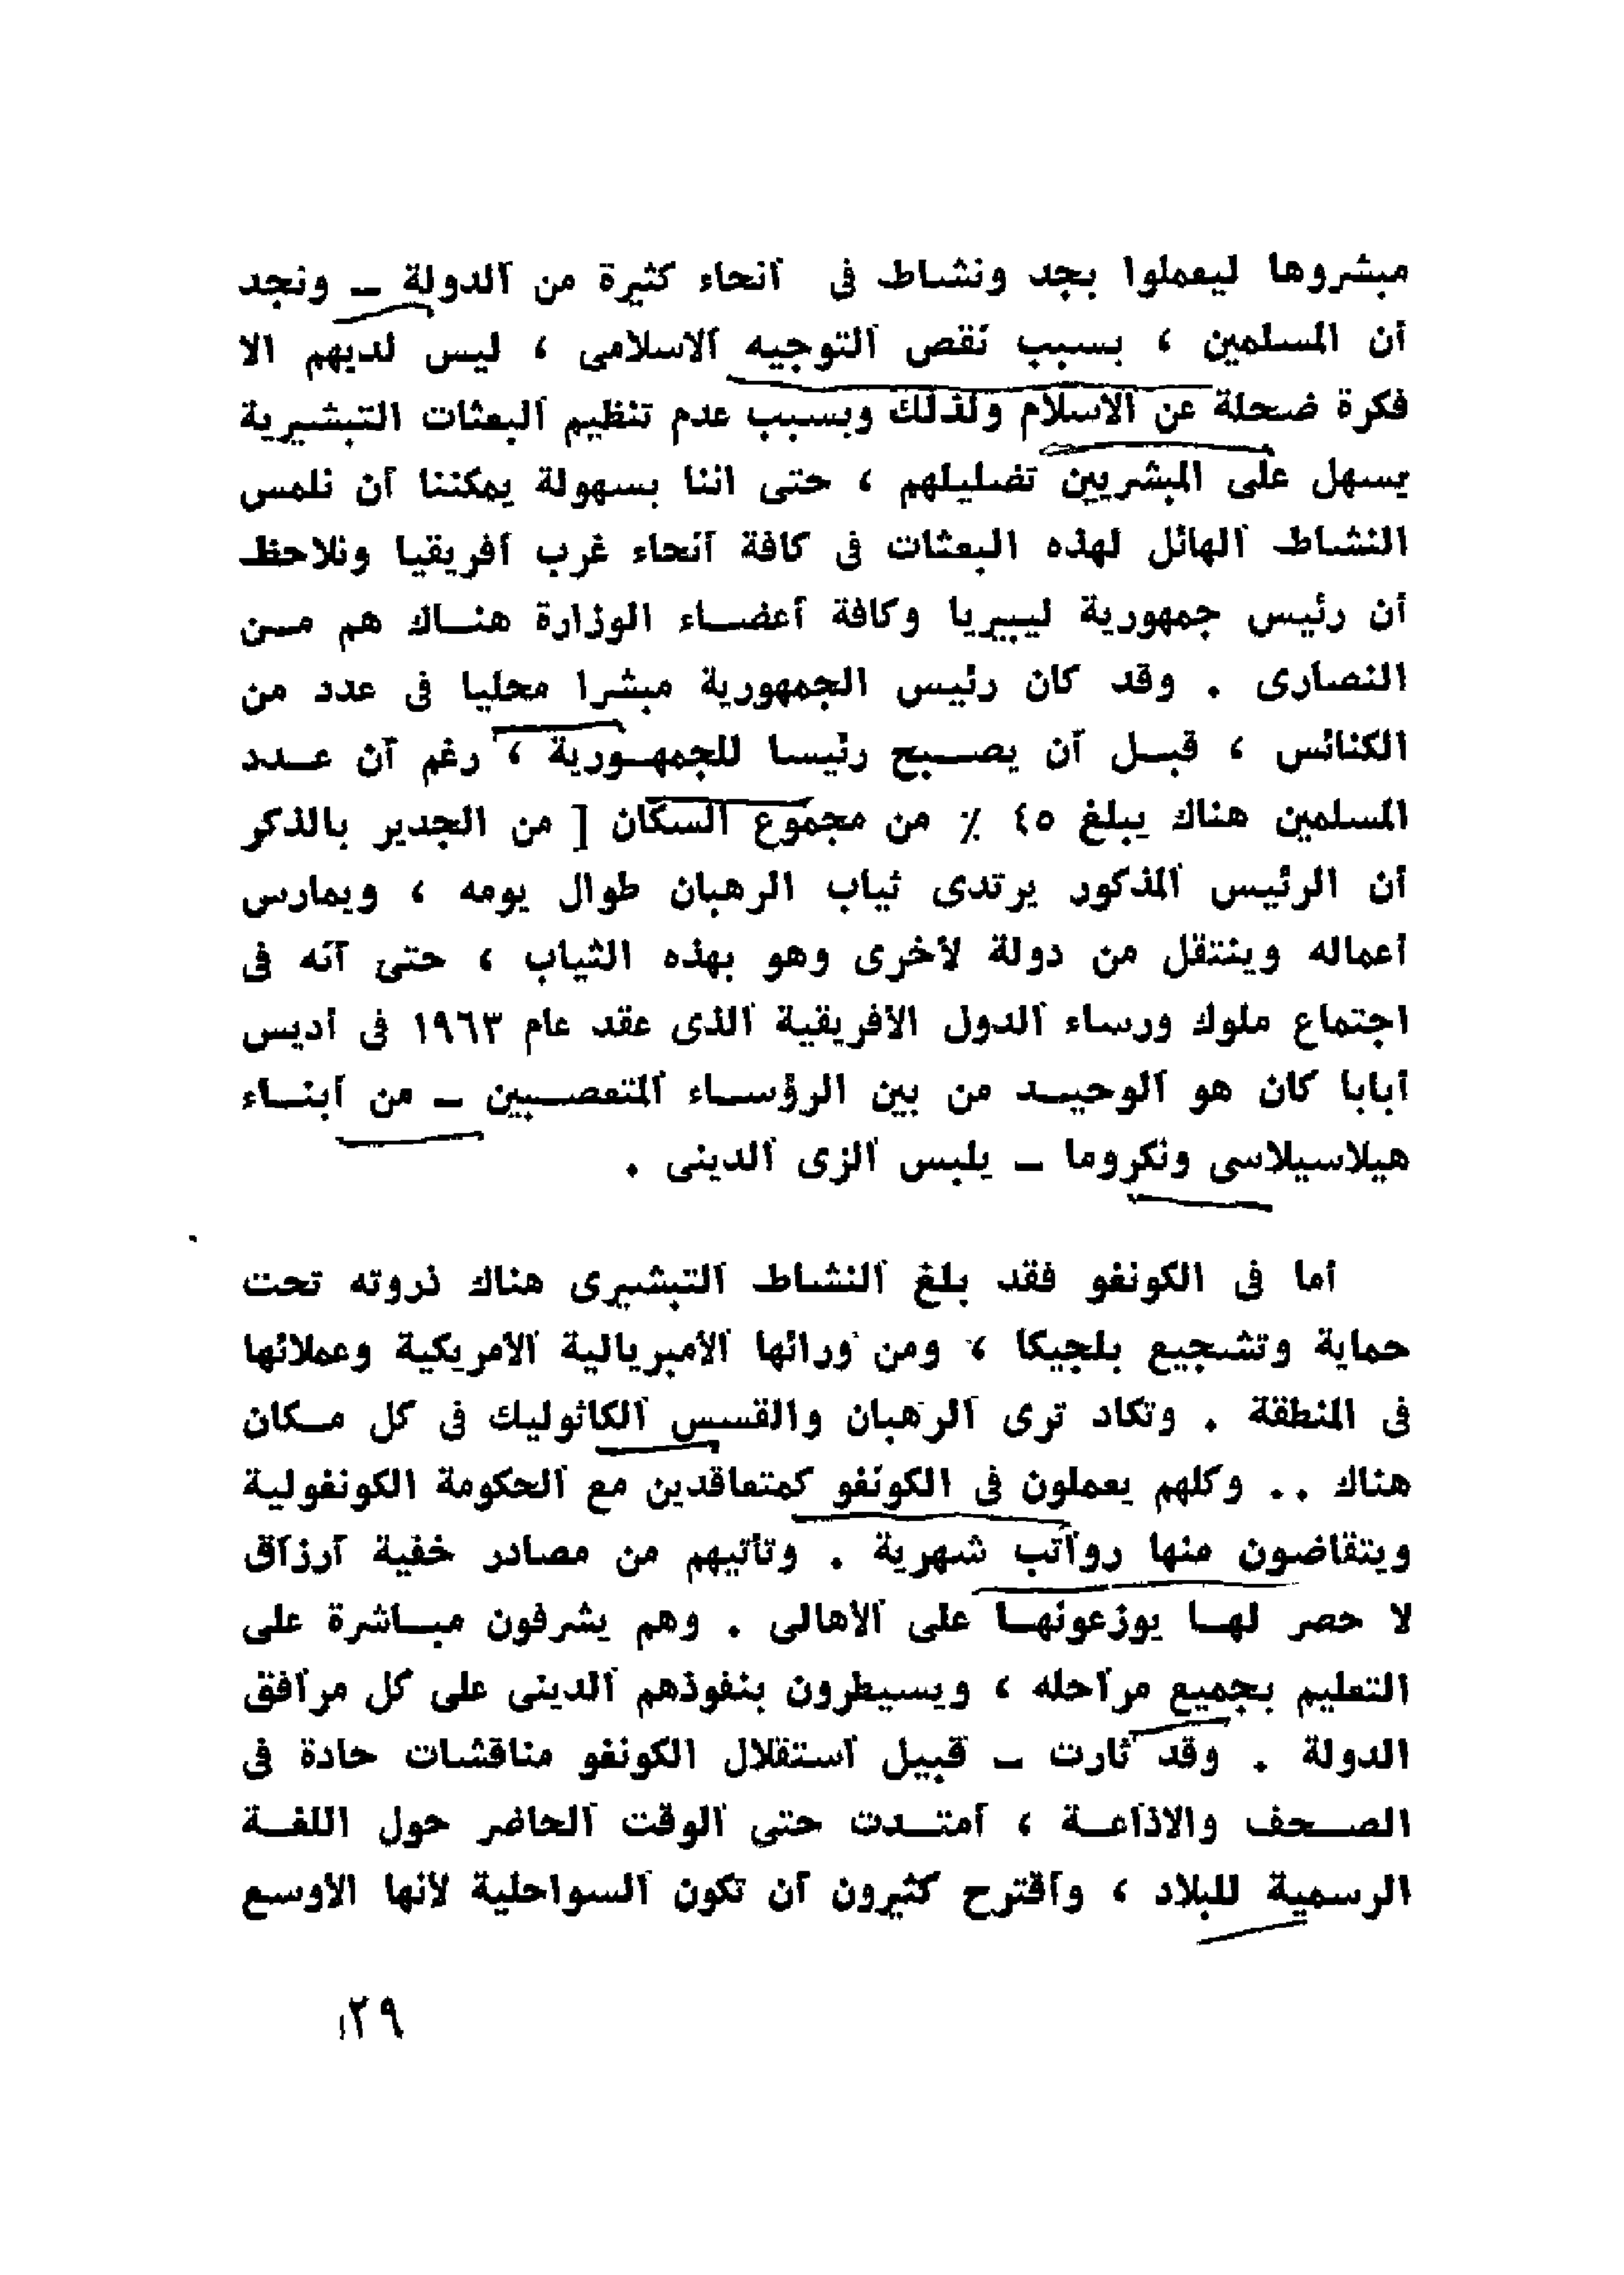 مبشروها ليعملوا بجد ونشاط فى أنحاء كثيرة من الدولة ــ ونجد
أن المسلمين ، بسبب نقص التوجيه الاسلامى ، ليس لديهم الا
فكرة ضحلة عن الاسلام ولذلك وبسبب عدم تنظيم البعثات التبشيرية
يسهل على المبشريين تضليلهم ، حتى اننا بسهولة يمكننا أن نلمس
النشاط الهائل لهذه البعثات فى كافة أنحاء غرب أفريقيا ونلاحظ
أن رئيس جمهورية ليبيريا وكافة أعضاء الوزارة هناك هم من
النصارى . وقد كان رئيس الجمهورية مبشرا محليا فى عدد من
الكنائس ، قبل أن يصبح رئيسا للجمهورية ، رغم أن عدد
المسلمين هناك يبلغ ٤٥ ٪ من مجموع السكان [ من الجدير بالذكر
أن الرئيس المذكور يرتدى ثياب الرهبان طوال يومه ، ويمارس
أعماله وينتقل من دولة لأخرى وهو بهذه الثياب ، حتى أنه فى
اجتماع ملوك ورساء الدول الافريقية الذى عقد عام ١٩٦٣ فى أديس
أبابا كان هو الوحيد من بين الرؤساء المتعصبين ــ من أبناء
هيلاسيلاسى ونكروما ــ يلبس الزى الدينى .
أما فى الكونغو فقد بلغ النشاط التبشيرى هناك ذروته تحت
حماية وتشجيع بلجيكا ، ومن ورائها الأمبريالية الأمريكية وعملائها
فى المنطقة . وتكاد ترى الرهبان والقسس الكاثوليك فى كل مكان
هناك .. وكلهم يعملون فى الكونغو كمتعاقدين مع الحكومة الكونغولية
ويتقاضون منها رواتب شهرية . وتأتيهم من مصادر خفية أرزاق
لا حصر لها يوزعونها على الأهالى . وهم يشرفون مباشرة على
التعليم بجميع مراحله ، ويسيطرون بنفوذهم الدينى على كل مرافق
الدولة . وقد ثارت ــ قبيل استقلال الكونغو مناقشات حادة فى
الصحف والاذاعة ، امتدت حتى الوقت الحاضر حول اللغة
الرسمية للبلاد ، واقترح كثيرون أن تكون السواحلية لأنها الأوسع
٢٩